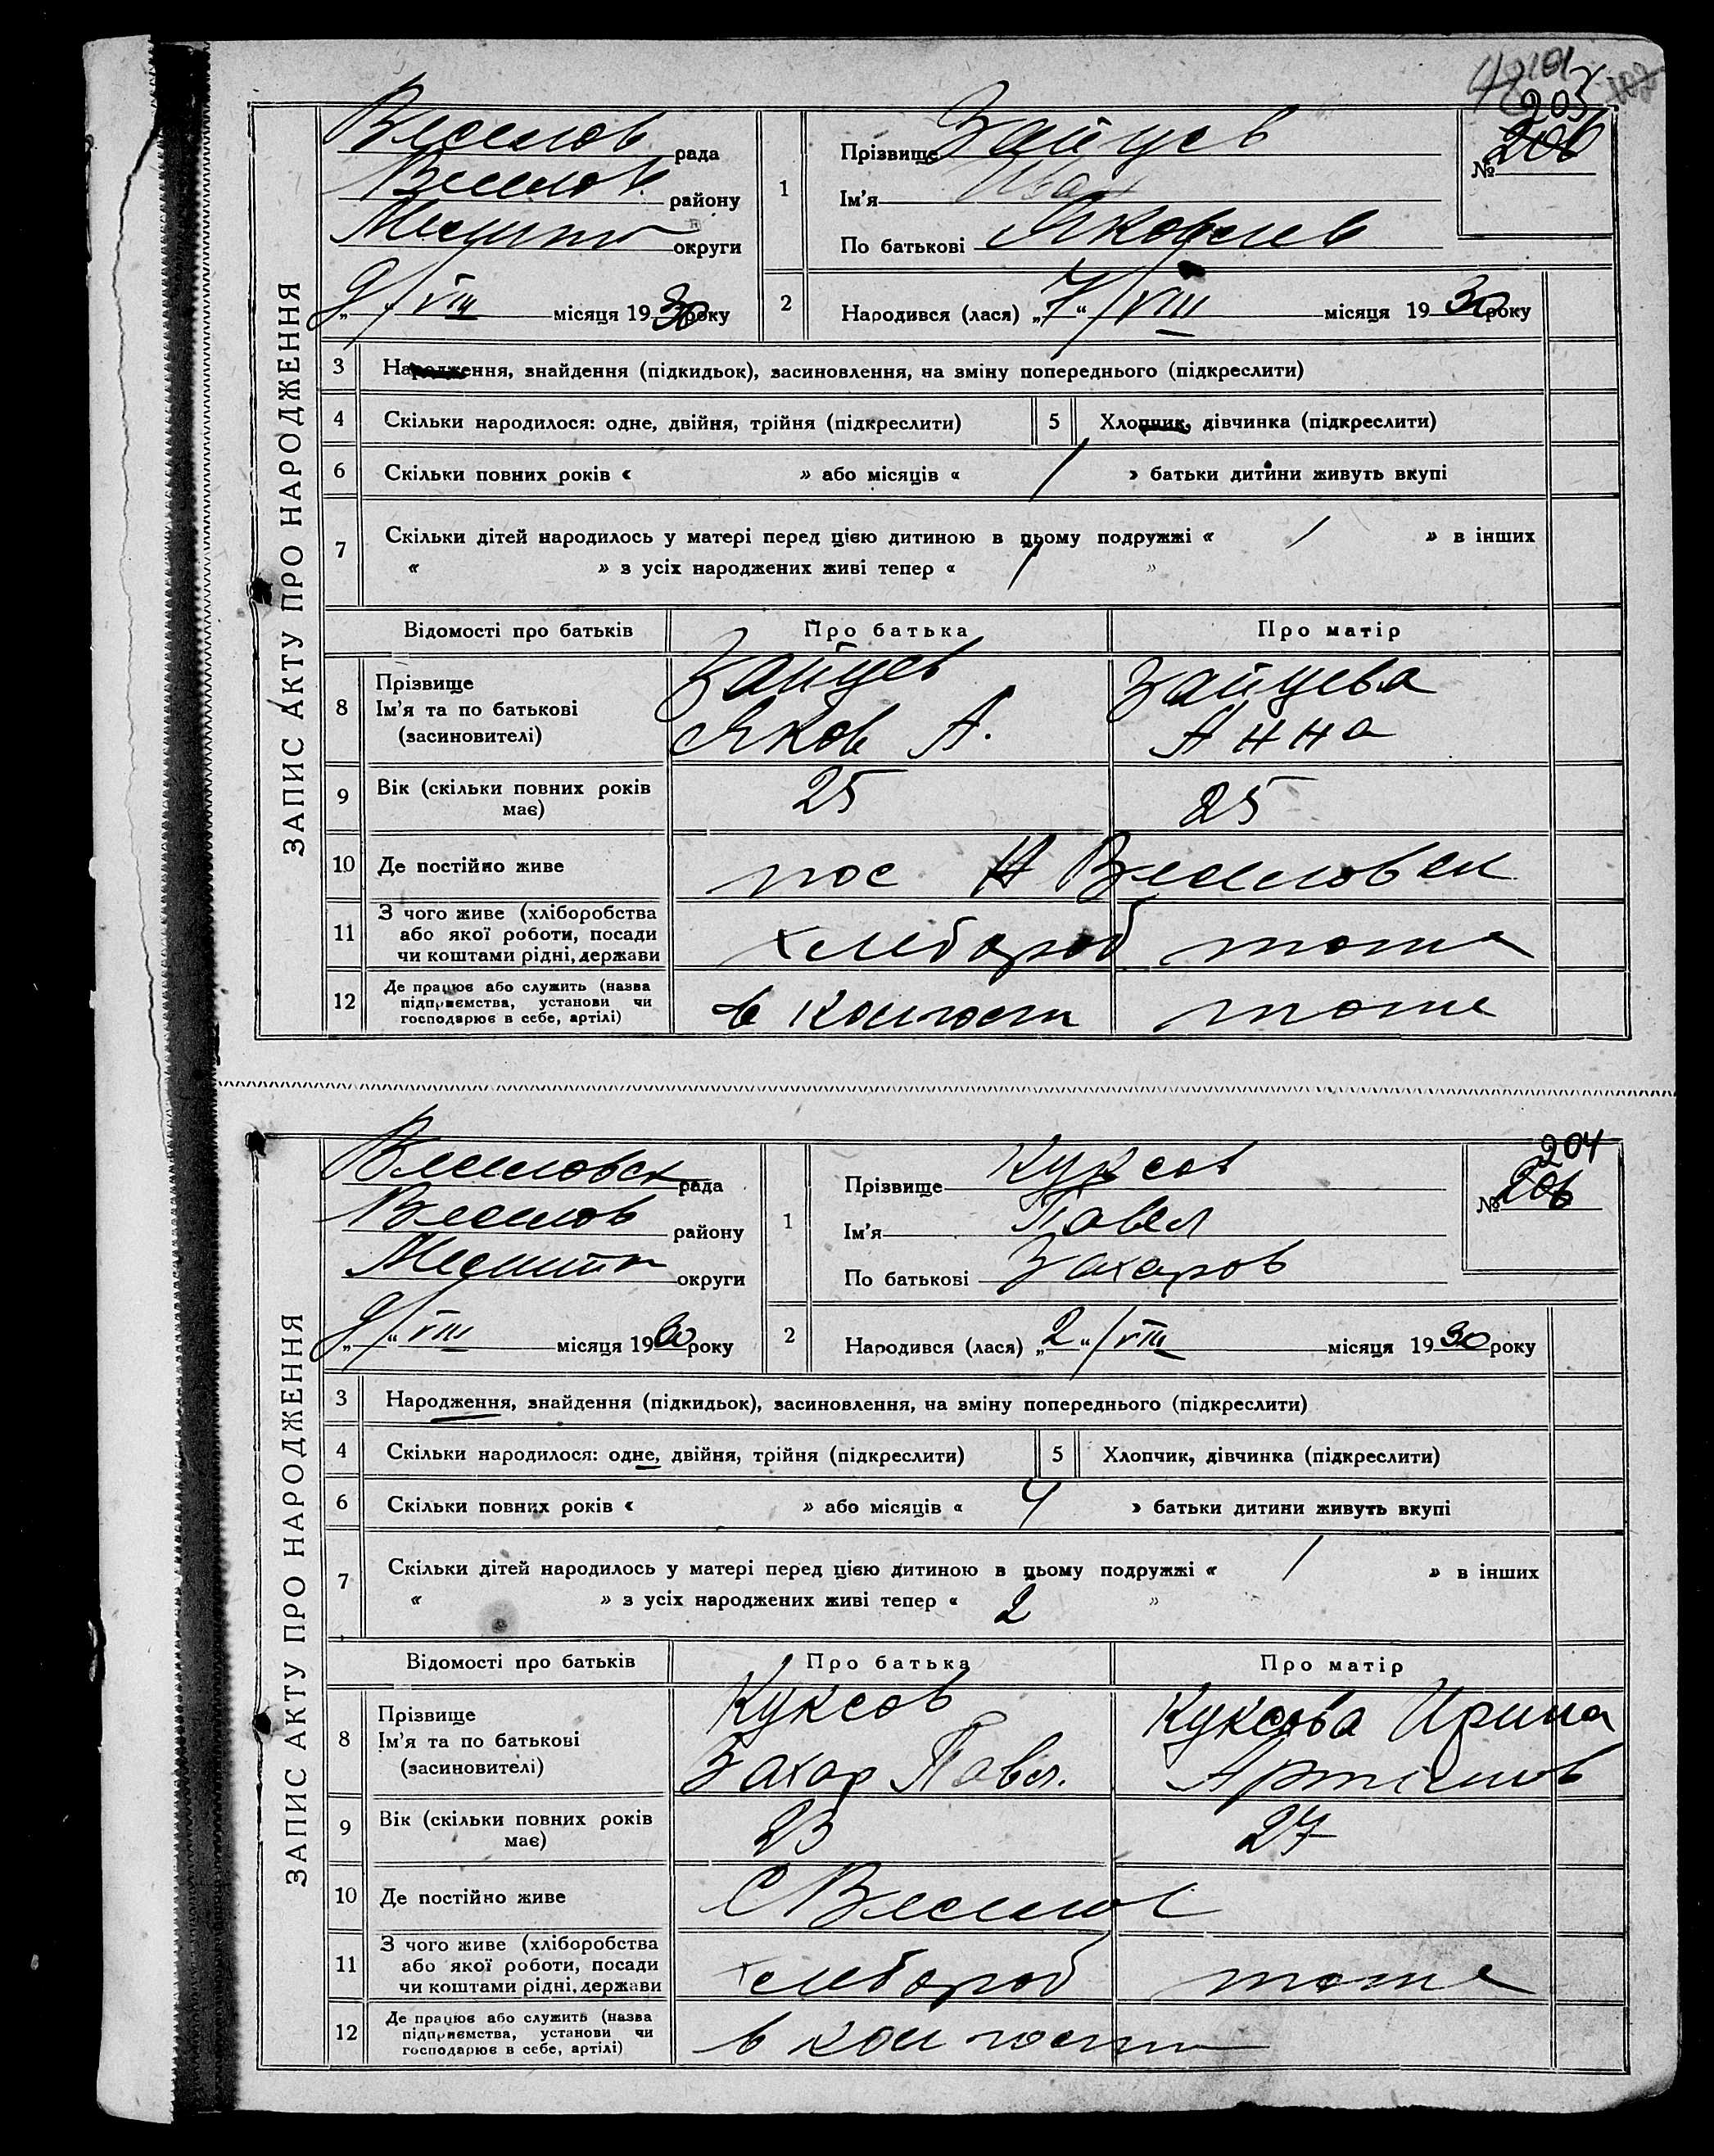 101
203
ЗАПИС АКТУ ПРО НАРОДЖЕННЯ
Веселов рада
Веселов району
Мелит округи
1
Прізвище Зайцев
Ім'я Иван
По батькові Яковлев
№ 206
„9“/VIII місяця 1930 року
2 Народився (лася) „7“/VIII місяця 1930 року
3 Народження, знайдення (підкидьок), засиновлення, на зміну попереднього (підкреслити)
4 Скільки народилося: одне, двійня, трійня (підкреслити) 5 Хлопчик, дівчинка (підкреслити)
6 Скільки повних років « » або місяців « / » батьки дитини живуть вкупі
7 Скільки дітей народилось у матері перед цією дитиною в цьому подружжі « / » в інших
« » з усіх народжених живі тепер « / »
Відомості про батьків Про батька Про матір
8 Прізвище Ім'я та по батькові (засиновителі) Зайцев Яков А. Зайцева Анна
9 Вік (скільки повних років має) 25 25
10 Де постійно живе пос Н Веселовск
11 З чого живе (хліборобства або якої роботи, посади чи коштами рідні, держави хлебороб тоже
12 Де працює або служить (назва підприємства, установи чи господарює в себе, артілі) в тоже
ЗАПИС АКТУ ПРО НАРОДЖЕННЯ
Веселовск рада
Веселов району
Мелит округи
1
Прізвище Куксов
Ім'я Павел
По батькові Захаров
204
№ 206
„9“/VIII місяця 1930 року
2 Народився (лася) „2“/VIII місяця 1930 року
3 Народження, знайдення (підкидьок), засиновлення, на зміну попереднього (підкреслити)
4 Скільки народилося: одне, двійня, трійня (підкреслити) 5 Хлопчик, дівчинка (підкреслити)
6 Скільки повних років « » або місяців « 4 » батьки дитини живуть вкупі
7 Скільки дітей народилось у матері перед цією дитиною в цьому подружжі « / » в інших
« » з усіх народжених живі тепер « 2 »
Відомості про батьків Про батька Про матір
8 Прізвище Ім'я та по батькові (засиновителі) Куксов Захар Павл. Куксова Ирина Артемов
9 Вік (скільки повних років має) 23 27
10 Де постійно живе С Веселое
11 З чого живе (хліборобства або якої роботи, посади чи коштами рідні, держави хлебороб тоже
12 Де працює або служить (назва підприємства, установи чи господарює в себе, артілі) в